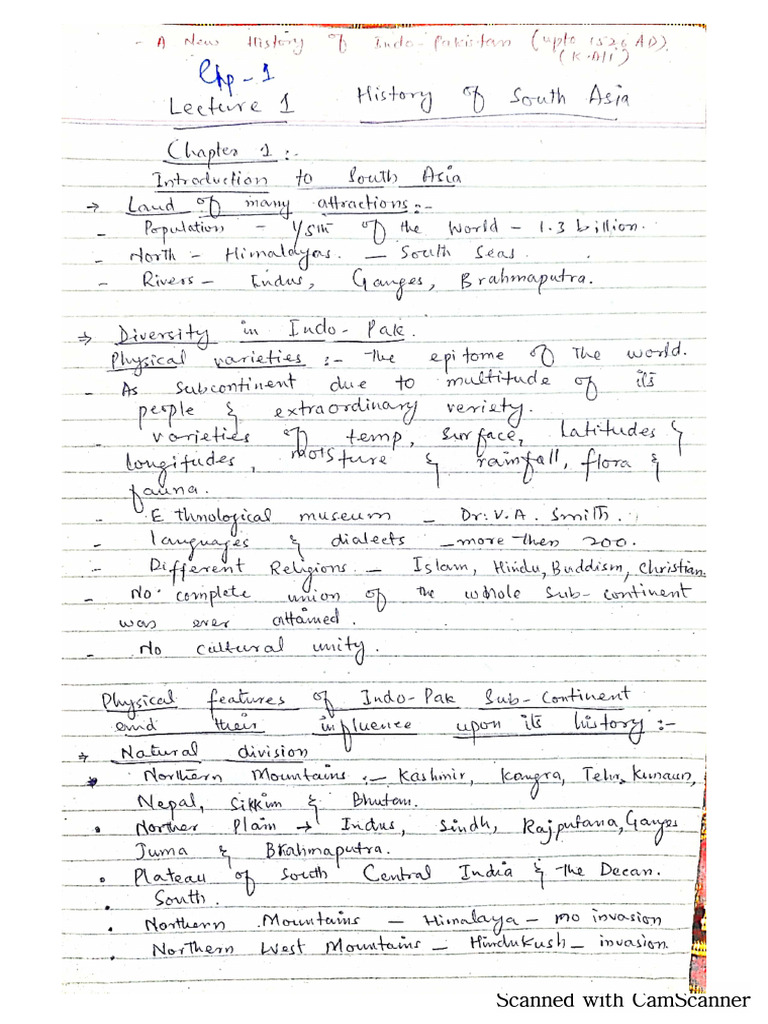 - A New History of Indo-Pakistan (upto 1526 AD)
(K.Ali)
Chp-1
Lecture 1 History of South Asia
Chapter 1 :-
Introduction to South Asia
→ Land of many attractions:-
- Population - 1/5th of the World - 1.3 billion.
- North - Himalayas. - South Seas.
- Rivers - Indus, Ganges, Brahmaputra.
⇒ Diversity in Indo-Pak.
Physical varieties :- The epitome of The world.
- As subcontinent due to multitude of its
people & extraordinary veriety.
- varieties of temp, surface, Latitudes &
longitudes, moisture & rainfall, flora &
fauna.
- Ethnological museum - Dr. V.A. Smith.
- languages & dialects - more then 200.
- Different Religions - Islam, Hindu, Buddism, Christian.
- No complete union of the whole sub-continent
was ever attained.
- No cultural unity.
Physical features of Indo-Pak Sub-Continent
and their influence upon its history :-
⇒ Natural division
* Northern Mountains :- Kashmir, Kangra, Tehr, Kunaun,
Nepal, Sikkim & Bhutan.
• Norther Plain → Indus, Sindh, Rajputana, Ganges
Juma & Brahmaputra.
• Plateau of South Central India & the Decan.
• South.
• Northern Mountains - Himalaya - no invasion
• Northern West Mountains - Hindukush - invasion.
Scanned with CamScanner